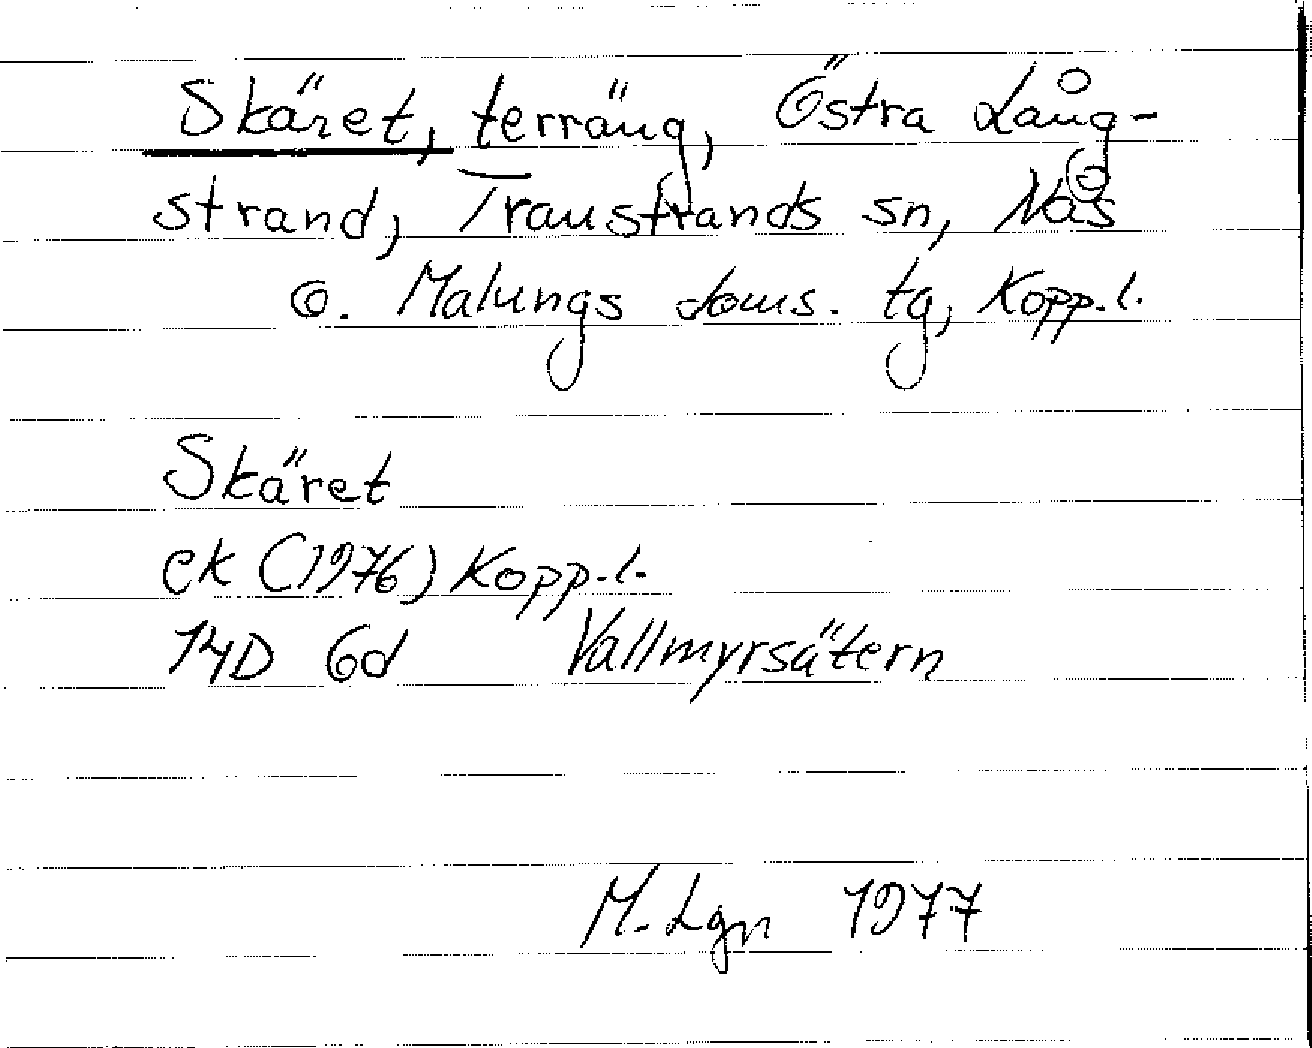 Skäret, terräng, Östra Lång-
strand, Transtrands sn, Nås
o. Malungs doms. tg, Kopp.l.
Skäret
ek (1976) Kopp.l.
14D 6d Vallmyrsätern
M. Lgn 1977